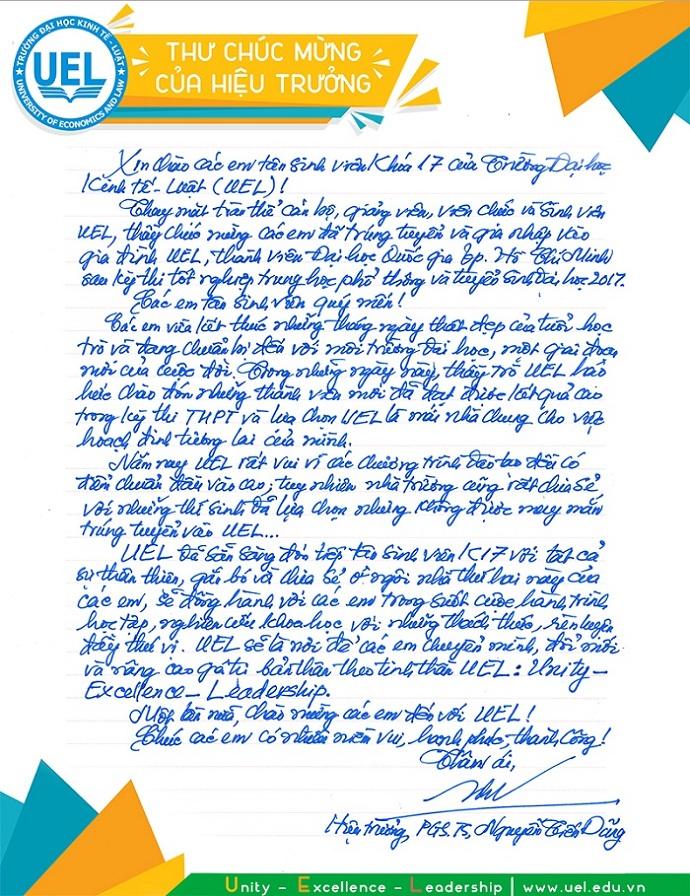 TRƯỜNG ĐẠI HỌC KINH TẾ - LUẬT
UEL
UNIVERSITY OF ECONOMICS AND LAW
THƯ CHÚC MỪNG
CỦA HIỆU TRƯỞNG
Xin chào các em tân sinh viên Khóa 17 của Trường Đại học
Kinh tế - Luật (UEL)!
Thay mặt toàn thể cán bộ, giảng viên, viên chức và sinh viên
UEL, thầy chúc mừng các em đã trúng tuyển và gia nhập vào
gia đình UEL, thành viên Đại học Quốc gia Tp. Hồ Chí Minh
sau kỳ thi tốt nghiệp trung học phổ thông và tuyển sinh Đại học 2017.
Các em tân sinh viên quý mến!
Các em vừa kết thúc những tháng ngày thật đẹp của tuổi học
trò và đang chuẩn bị đến với môi trường đại học, một giai đoạn
mới của cuộc đời. Trong những ngày này, thầy trò UEL háo
hức chào đón những thành viên mới đã đạt được kết quả cao
trong kỳ thi THPT và lựa chọn UEL là mái nhà chung cho việc
hoạch định tương lai của mình.
Năm nay UEL rất vui vì các chương trình đào tạo đều có
điểm chuẩn đầu vào cao; tuy nhiên nhà trường cũng rất chia sẻ
với những thí sinh đã lựa chọn nhưng không được may mắn
trúng tuyển vào UEL...
UEL đã sẵn sàng đón tiếp tân sinh viên K17 với tất cả
sự thân thiện, gắn bó và chia sẻ ở ngôi nhà thứ hai này của
các em, sẽ đồng hành với các em trong suốt cuộc hành trình
học tập, nghiên cứu khoa học với những thách thức, rèn luyện
đầy thú vị. UEL sẽ là nơi để các em chuyển mình, đổi mới
và nâng cao giá trị bản thân theo tinh thần UEL: Unity -
Excellence - Leadership.
Một lần nữa, chào mừng các em đến với UEL!
Chúc các em có nhiều niềm vui, hạnh phúc, thành công!
Thân ái,
Hiệu trưởng, PGS.TS, Nguyễn Tiến Dũng
Unity - Excellence - Leadership | www.uel.edu.vn